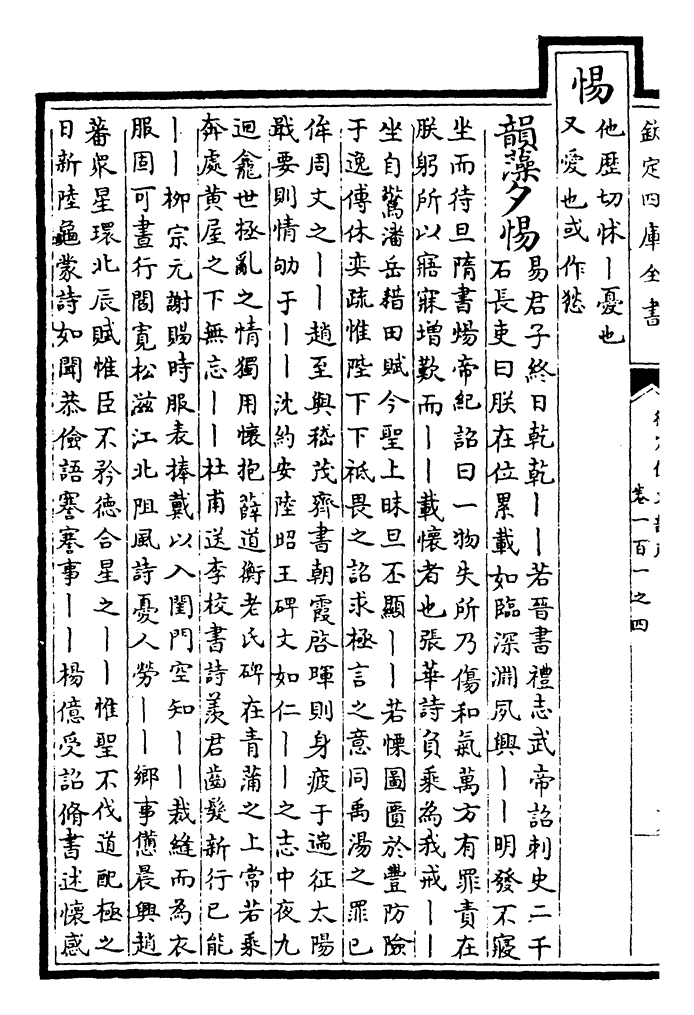 欽定四庫全書
卷一百一之四
惕
他歷切怵丨憂也
又愛也或作悐
韻藻夕惕
易君子終日乾乾丨丨若晉書禮志武帝詔刺史二千
石長吏曰朕在位累載如臨深淵夙興丨丨明發不寢
坐而待旦隋書煬帝紀詔曰一物失所乃傷和氣萬方有罪責在
朕躬所以寤寐增歎而丨丨載懷者也張華詩負乘為我戒丨丨
坐自驚潘岳耤田賦今聖上昧旦丕顯丨丨若慄圖匱於豐防險
于逸傅休奕疏惟陛下下祗畏之詔求極言之意同禹湯之罪已
侔周文之丨丨趙至與嵇茂齊書朝霞啓暉則身疲于遄征太陽
戢要則情劬于丨丨沈約安陸昭王碑文如仁丨丨之志中夜九
迴龕世拯亂之情獨用懷抱薛道衡老氏碑在青蒲之上常若乘
奔處黄屋之下無忘丨丨杜甫送李校書詩羨君齒髮新行已能
丨丨柳宗元謝賜時服表捧戴以入閨門空知丨丨裁縫而為衣
服固可晝行閻寛松滋江北阻風詩憂人勞丨丨鄉事憊晨興趙
蕃衆星環北辰賦惟臣不矜德合星之丨丨惟聖不伐道配極之
日新陸龜蒙詩如聞恭儉語謇謇事丨丨楊億受詔脩書述懷感